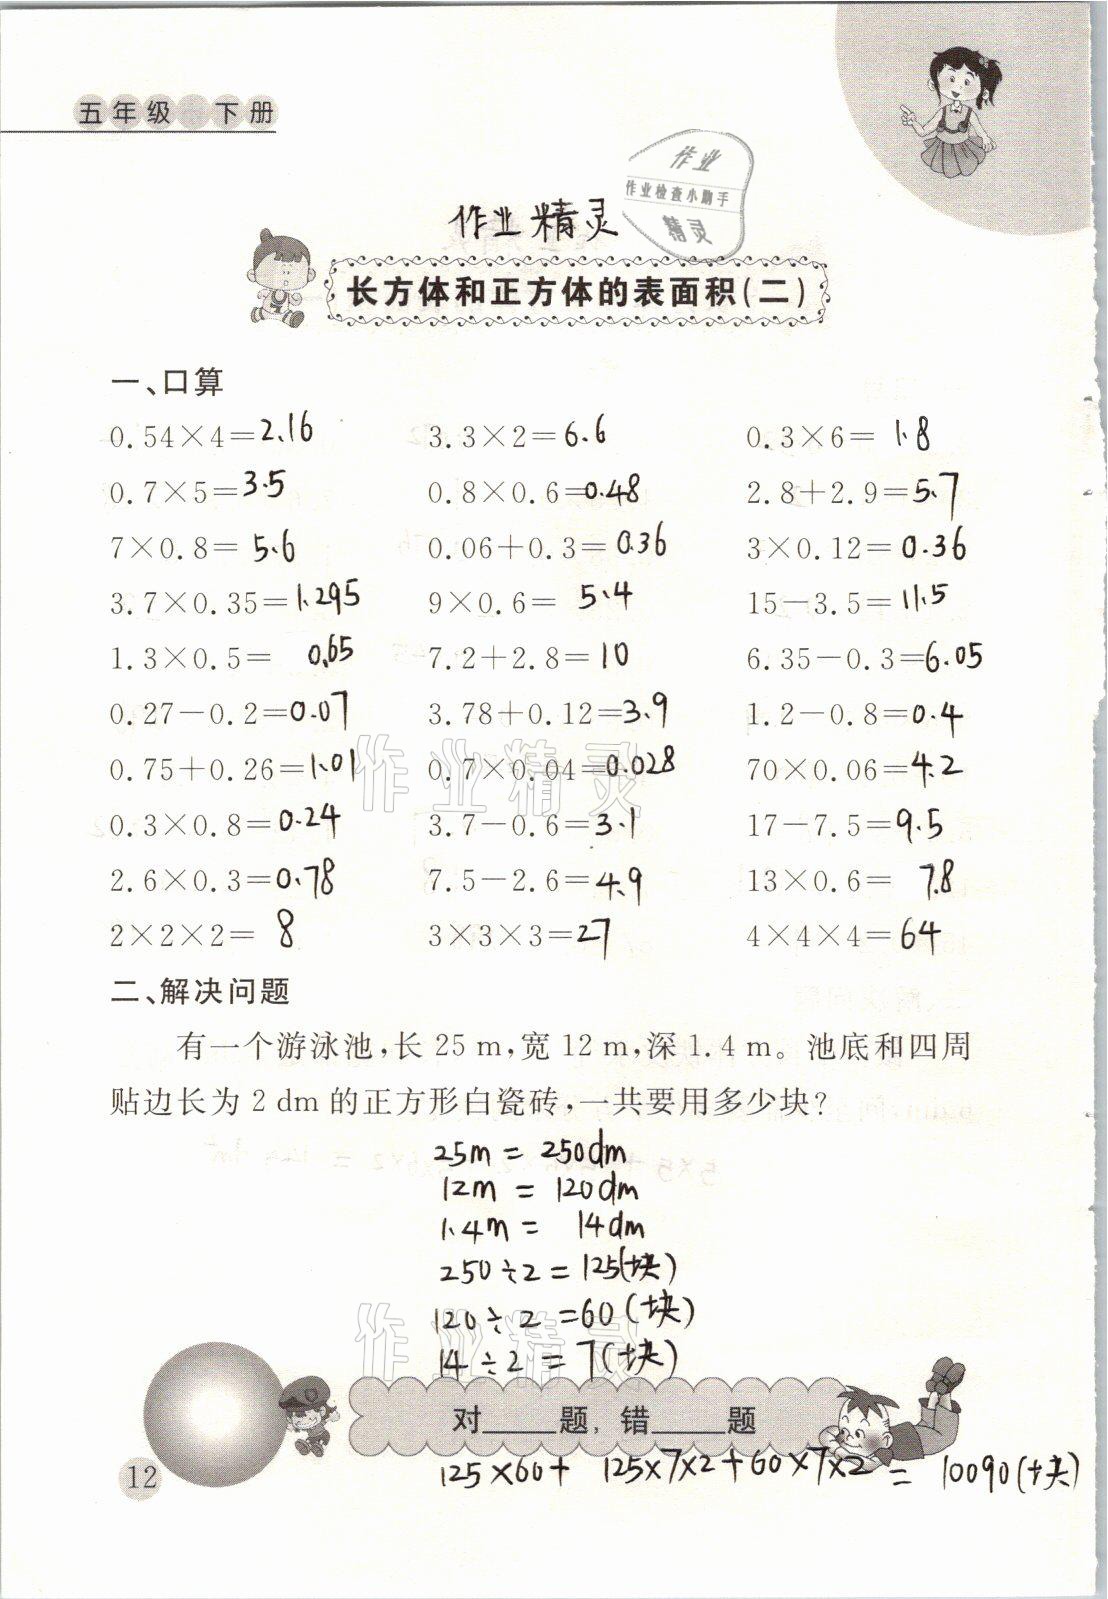 五年级 下册
作业
作业检查小助手
精灵
作业精灵
长方体和正方体的表面积(二)
一、口算
0.54×4=2.16 3.3×2=6.6 0.3×6=1.8
0.7×5=3.5 0.8×0.6=0.48 2.8+2.9=5.7
7×0.8=5.6 0.06+0.3=0.36 3×0.12=0.36
3.7×0.35=1.295 9×0.6=5.4 15-3.5=11.5
1.3×0.5=0.65 7.2+2.8=10 6.35-0.3=6.05
0.27-0.2=0.07 3.78+0.12=3.9 1.2-0.8=0.4
0.75+0.26=1.01 0.7×0.04=0.028 70×0.06=4.2
作业精灵
0.3×0.8=0.24 3.7-0.6=3.1 17-7.5=9.5
2.6×0.3=0.78 7.5-2.6=4.9 13×0.6=7.8
2×2×2=8 3×3×3=27 4×4×4=64
二、解决问题
有一个游泳池,长25 m,宽12 m,深1.4 m。池底和四周
贴边长为2 dm的正方形白瓷砖,一共要用多少块?
25m=250dm
12m=120dm
1.4m=14dm
250÷2=125(块)
120÷2=60(块)
作业精灵
14÷2=7(块)
对____题,错____题
125×60+125×7×2+60×7×2=10090(块)
12